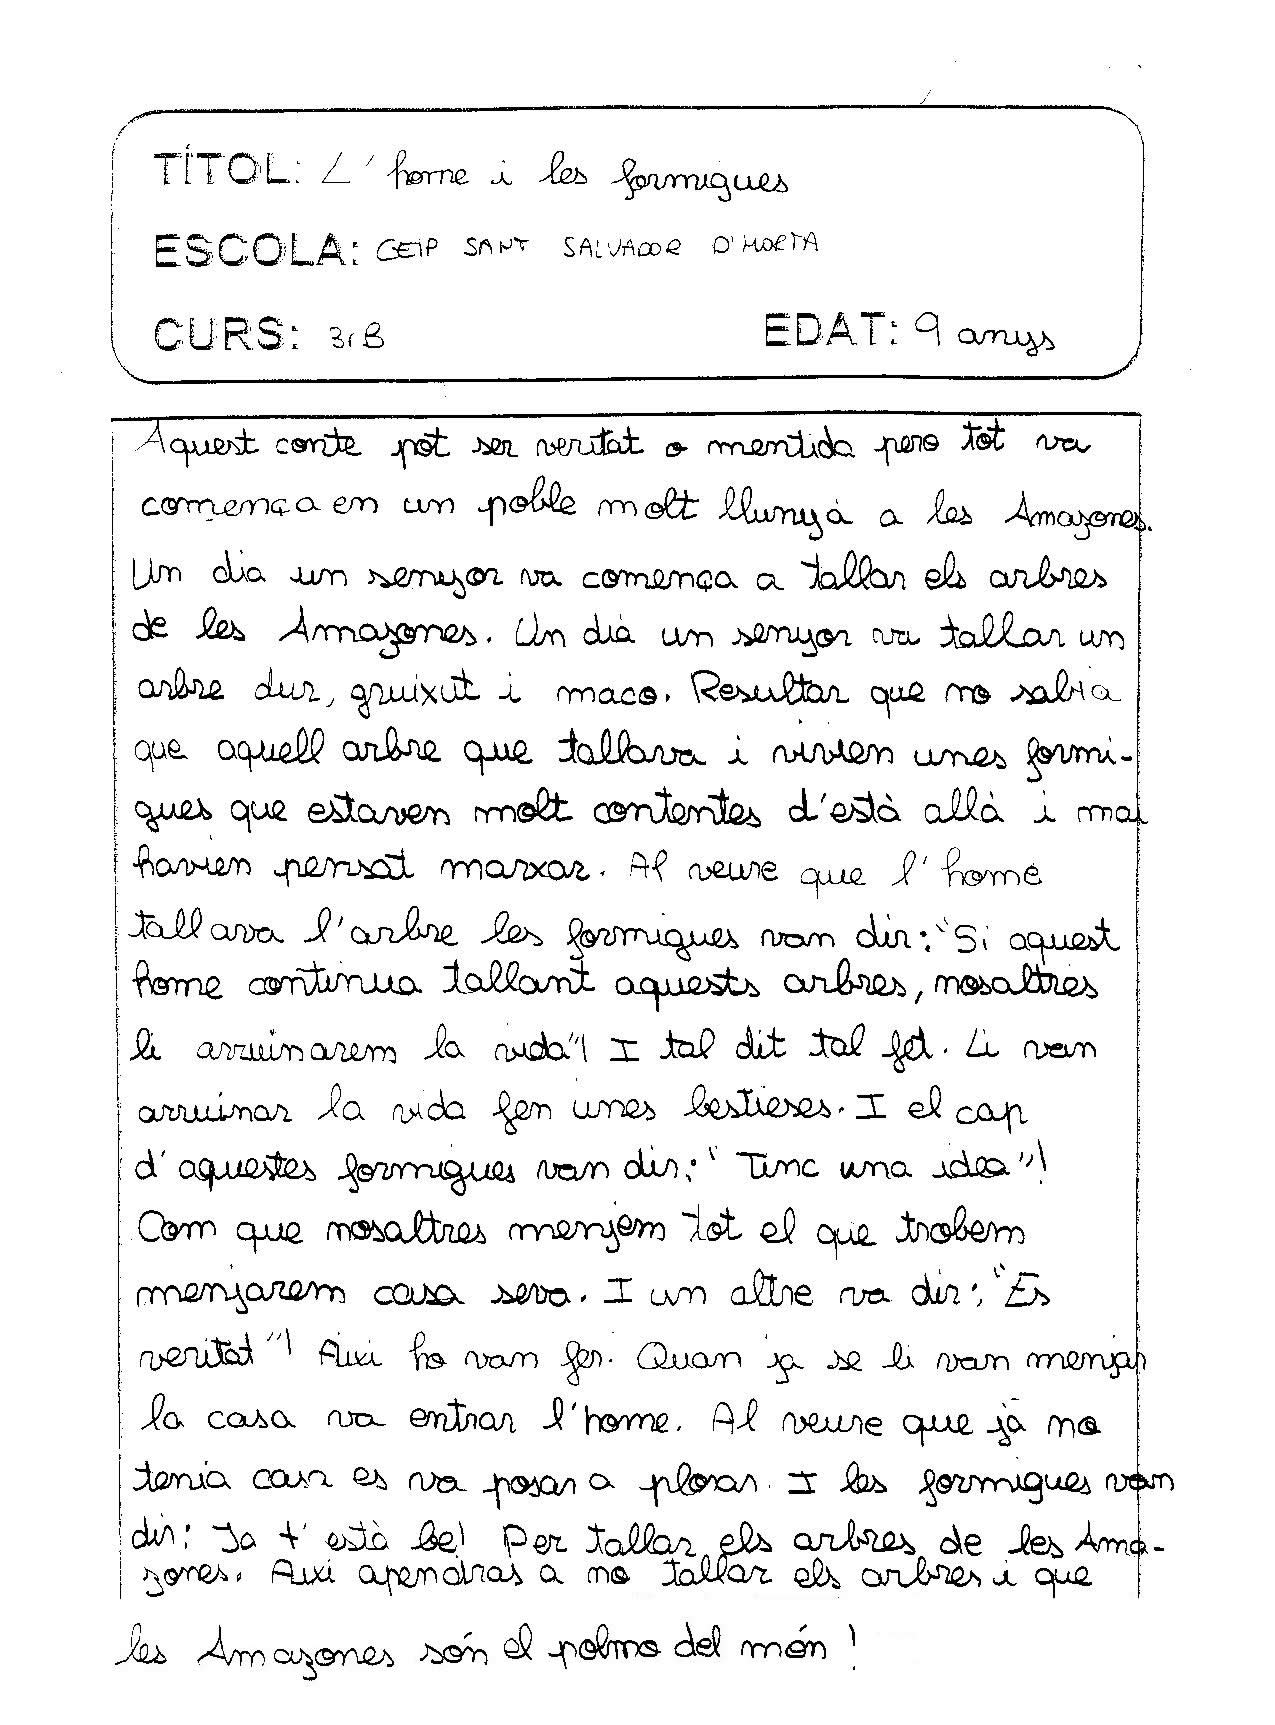 TÍTOL: L'home i les formigues
ESCOLA: CEIP SANT SALVADOR D'HORTA
CURS: 3r B EDAT: 9 anys
Aquest conte pot ser veritat o mentida pero tot va
comença en un poble molt llunyà a les Amazones.
Un dia un senyor va comença a tallar els arbres
de les Amazones. Un dia un senyor va tallar un
arbre dur, gruixut i maco. Resultar que no sabia
que aquell arbre que tallava i vivien unes formi-
gues que estaven molt contentes d'està allà i mai
havien pensat marxar. Al veure que l'home
tallava l'arbre les formigues van dir: "Si aquest
home continua tallant aquests arbres, nosaltres
li arruinarem la vida"! I tal dit tal fet. Li van
arruinar la vida fen unes bestieses. I el cap
d'aquestes formigues van dir: "Tinc una idea"!
Com que nosaltres menjem tot el que trobem
menjarem casa seva. I un altre va dir: "Es
veritat"! Aixi ho van fer. Quan ja se li van menjar
la casa va entrar l'home. Al veure que jà no
tenia casa es va posar a plorar. I les formigues van
dir: Ja t'està be! Per tallar els arbres de les Ama-
zones. Aixi apendras a no tallar els arbres i que
les Amazones són el polmo del món!